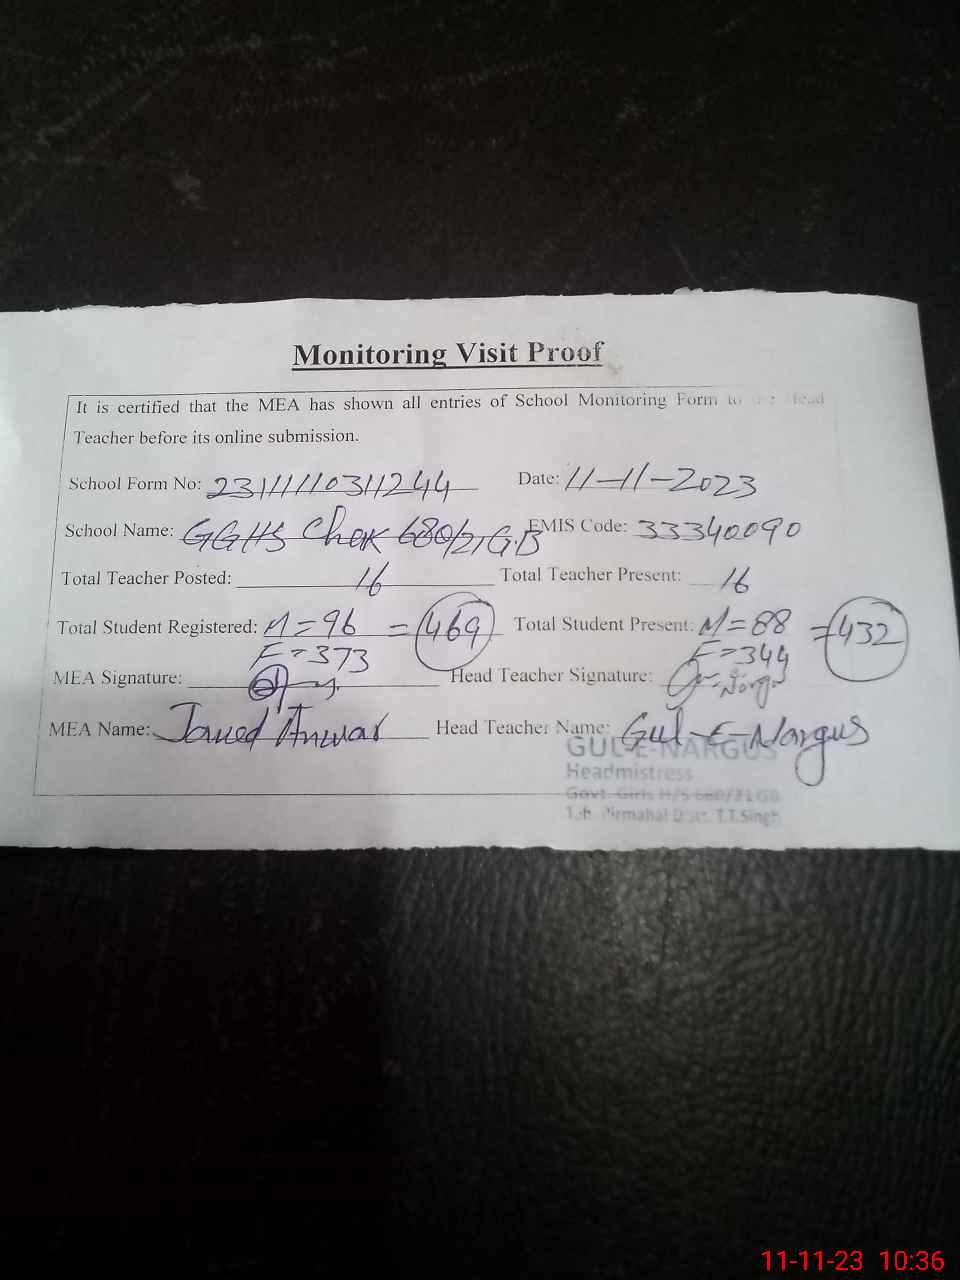 Monitoring Visit Proof
It is certified that the MEA has shown all entries of School Monitoring Form to the Head
Teacher before its online submission.
School Form No: 23111110311244 Date: 11-11-2023
School Name: GGHS Chak 680/21 G.B EMIS Code: 33340090
Total Teacher Posted: 16 Total Teacher Present: 16
Total Student Registered: M=96 =469 Total Student Present: M=88 =432
F=373 F=344
MEA Signature: Head Teacher Signature: Nargus
MEA Name: Javed Anwar Head Teacher Name: Gul-E-Nargus
GUL-E-NARGUS
Headmistress
Govt. Girls H/S 680/21 GB
Teh. Pirmahal Distt. T.T.Singh
11-11-23 10:36